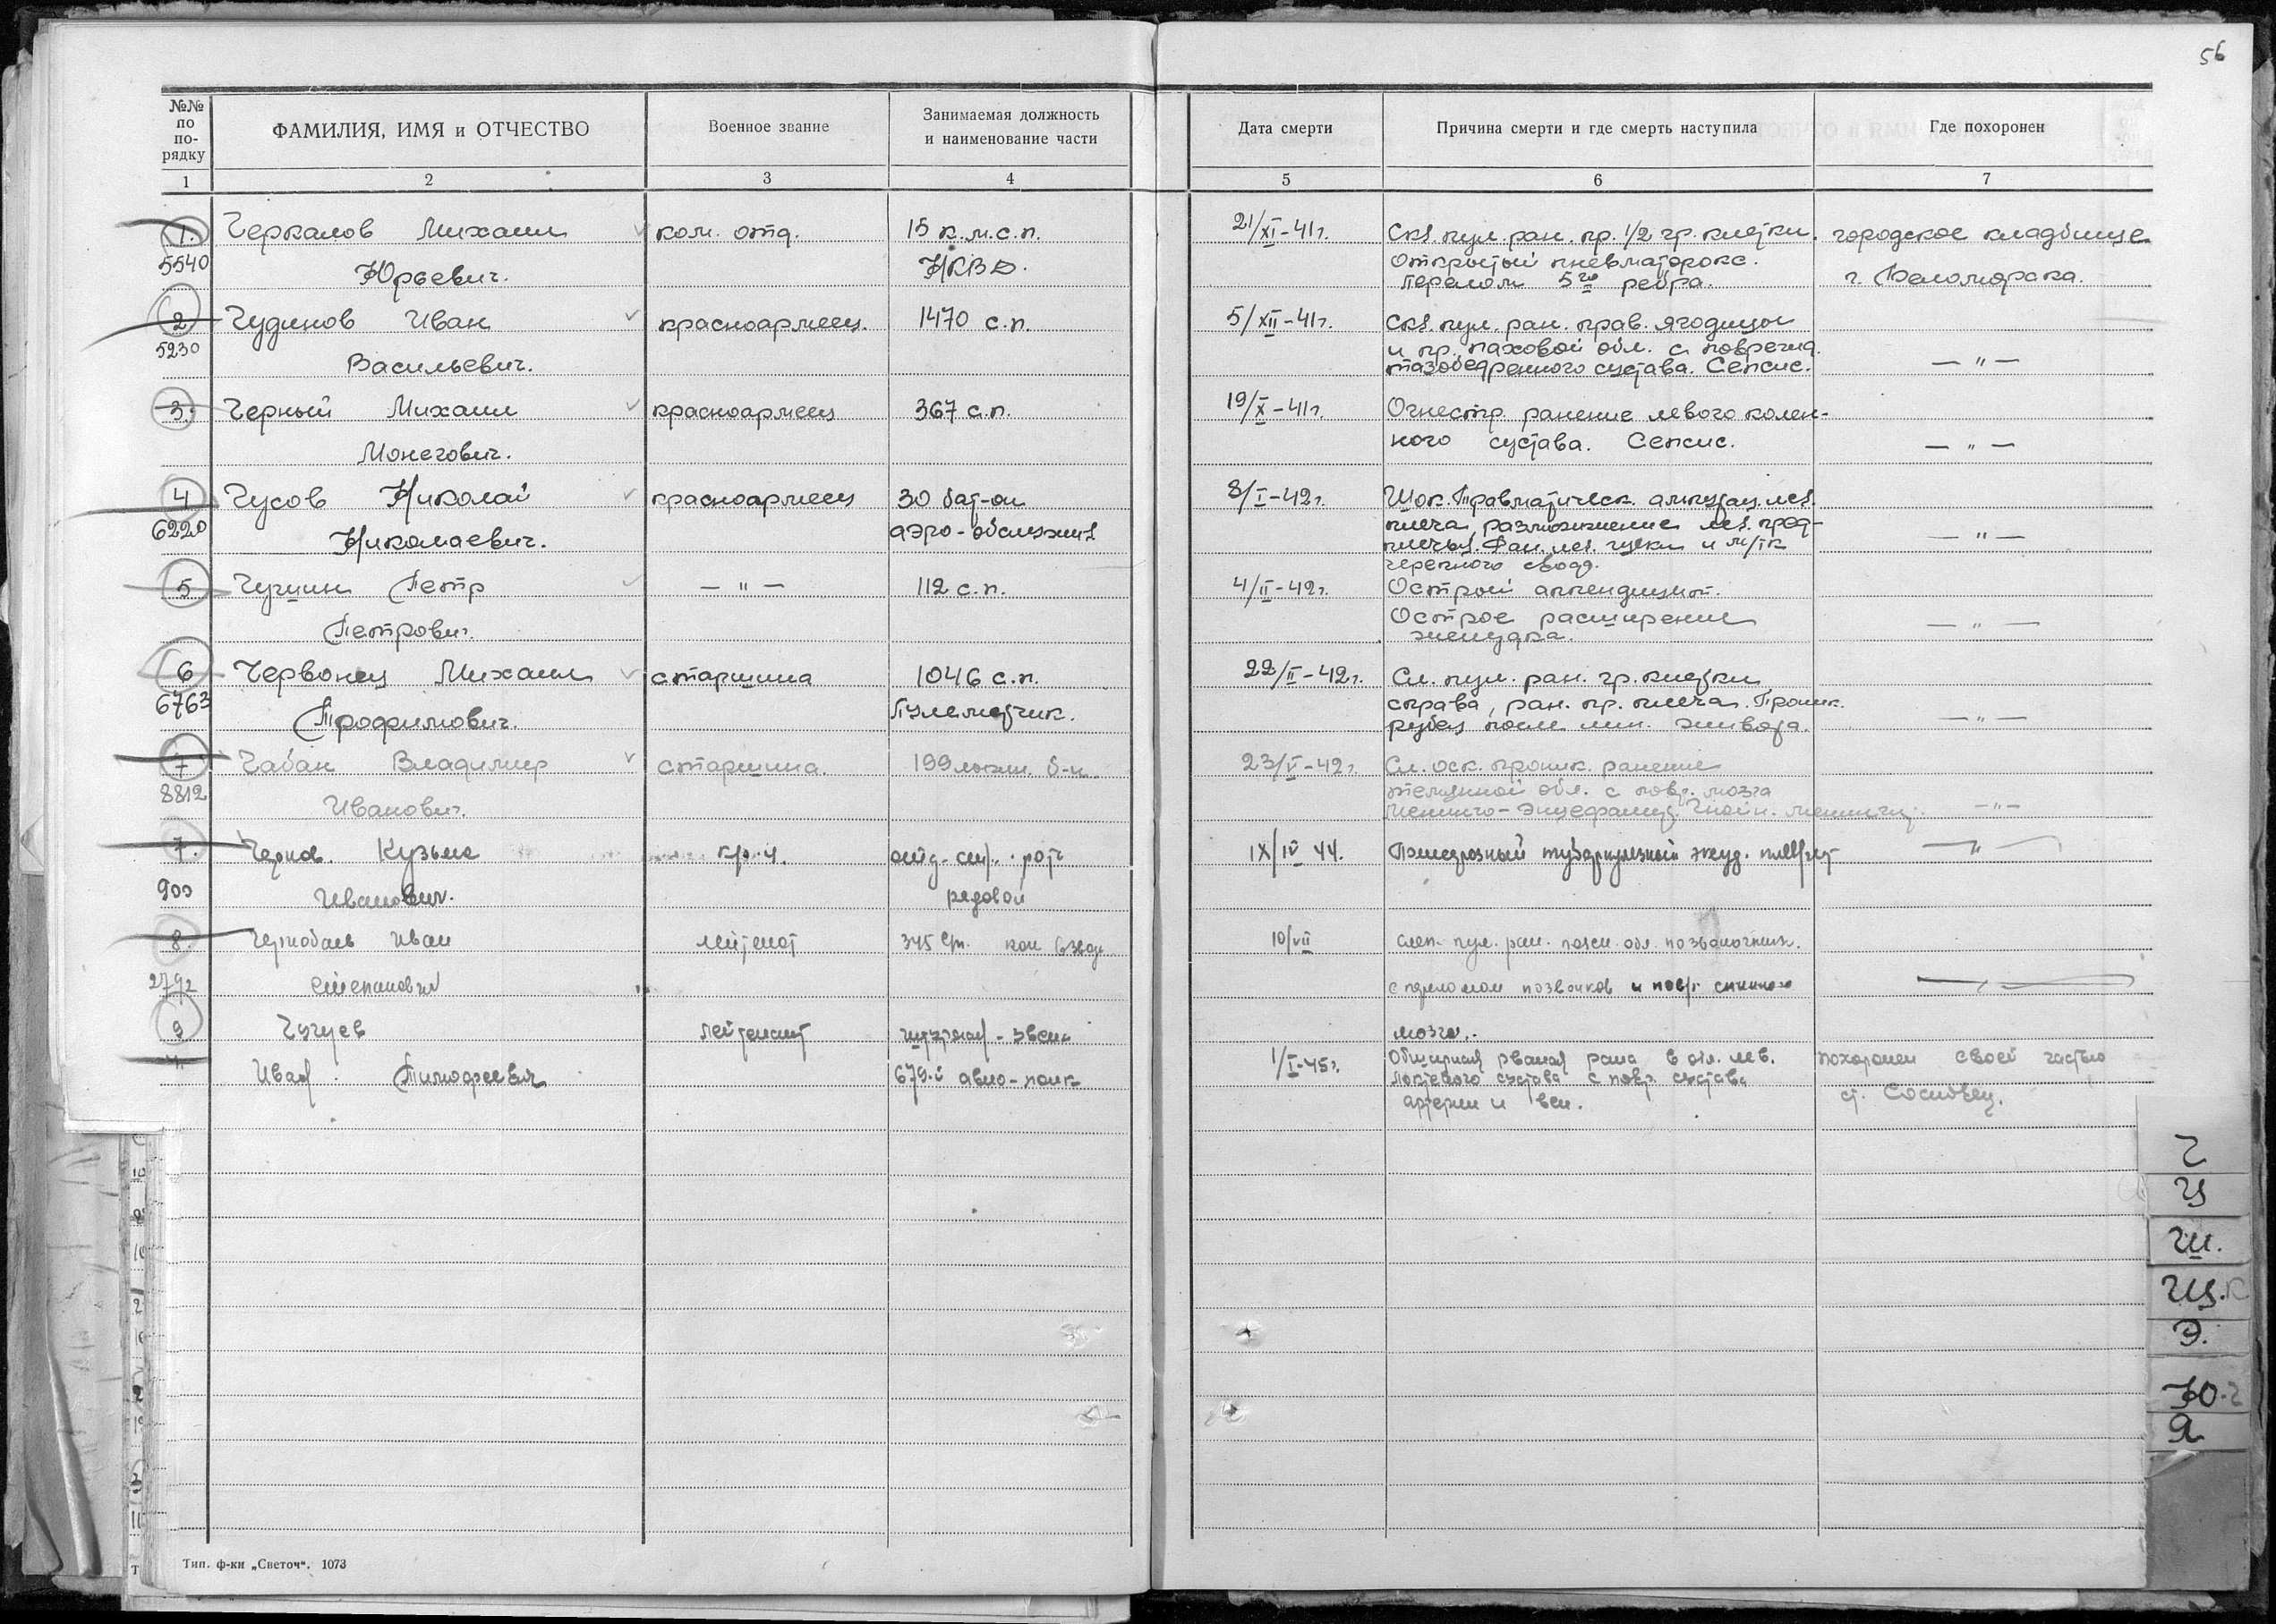 56
№№ по по-рядку
ФАМИЛИЯ, ИМЯ и ОТЧЕСТВО
Военное звание
Занимаемая должность и наименование части
Дата смерти
Причина смерти и где смерть наступила
Где похоронен
1 2 3 4 5 6 7
1. Черкалов Михаил ком. отд. 15 к.м.с.п. 21/XI-41г. Скв. пул. ран. пр. 1/2 гр. клетки. городское кладбище
5540 Юрьевич. НКВД. Открытый пневматоракс. г. Беломорска.
Перелом 5го ребра.
2 Чудинов Иван красноармеец. 1470 с.п. 5/XII-41г. Скв. пул. ран. прав. ягодицы
5230 Васильевич. и пр. паховой обл. с поврежд. — " —
тазобедренного сустава. Сепсис.
3. Черный Михаил красноармеец 367 с.п. 19/X-41г. Огнестр. ранение левого колен-
Монегович. ного сустава. Сепсис. — " —
4 Чусов Николай красноармеец 30 бат-он 8/I-42г. Шок. Травматическ. ампутац. лев.
6220 Николаевич. аэро-обслужив плеча, размозжение лев. пред-
плечья. Ран. лев. щеки и м/тк — " —
черепного свода.
5 Чучин Петр — " — 112 с.п. 4/II-42г. Острый аппендицит.
Петрович. Острое расширение — " —
желудка.
6 Червонец Михаил старшина 1046 с.п. 22/II-42г. Сл. пул. ран. гр. клетки
6763 Трофимович. Пулеметчик. справа, ран. пр. плеча. Проник.
рубец после лин. живота. — " —
7 Чабан Владимир старшина. 199 лыжн. б-н. 23/V-42г. Сл. оск. проник. ранение
8812 Иванович. теменной обл. с повр. мозга
Менинго-Энцефалит. Гнойн. менингит. — " —
7. Чернов Кузьма кр-ц. отд. рота IX/IV 44. туберкулезный экссуд. плеврит — " —
900 Иванович. рядовой
8. Чернобаев Иван лейтенант 345 сп. ком взвода 10/VII слеп. пул. ран. поясн. обл. позвоночника.
2792 Степанович с переломом позвонков и повр. спинного
мозга.
9 Чугуев лейтенант штурман-звена
Иван Тимофеевич 679-й авио-полк 1/I-45г. Обширная рваная рана в обл. лев. похоронен своей частью
локтевого сустава с повр. сустава ст. Сосновец.
артерии и вен.
Ч
Ц
Ш.
Щ.
Э.
Ю.
Я
Тип. ф-ки „Светоч“. 1073